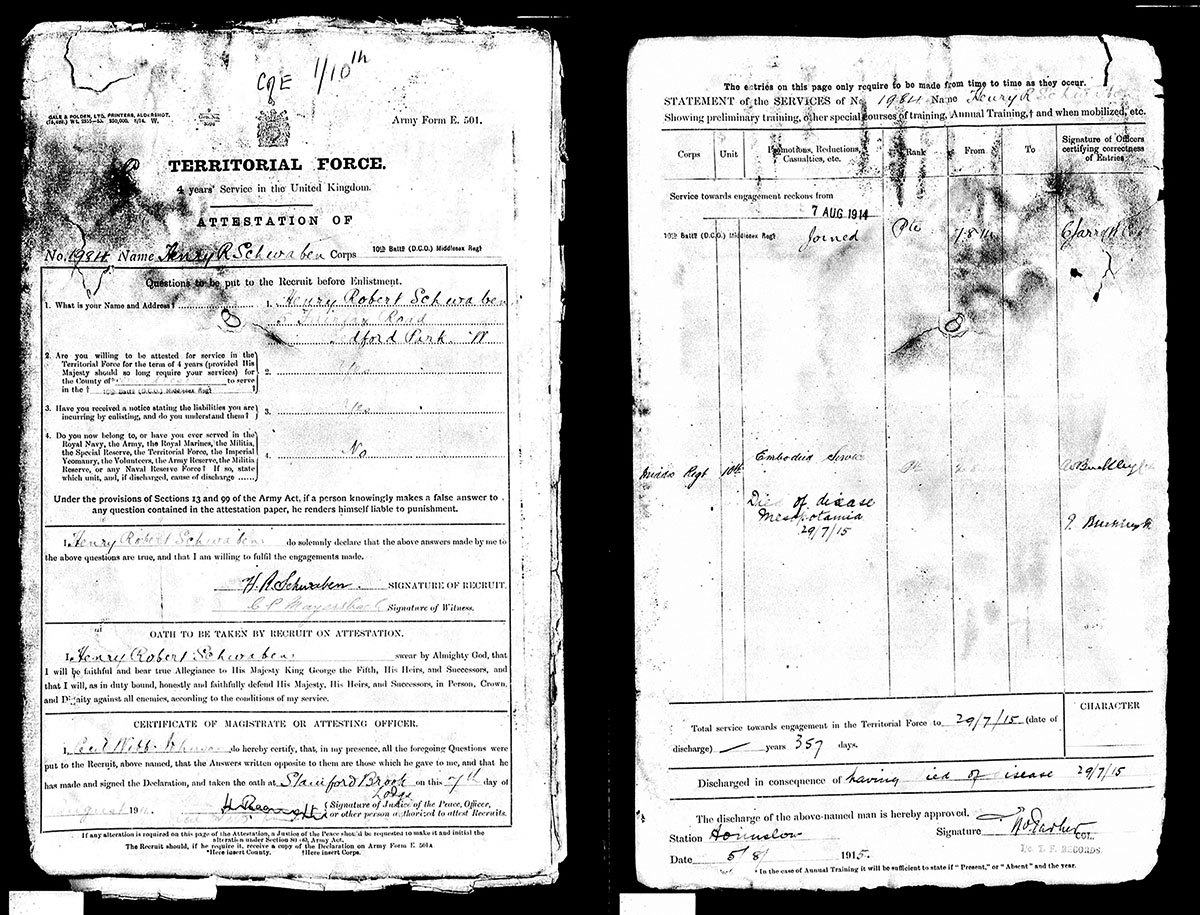 1/10th
GALE & POLDEN, LTD. PRINTERS, ALDERSHOT.
Army Form E. 501.
TERRITORIAL FORCE.
4 years' Service in the United Kingdom.
ATTESTATION OF
No. 1984 Name Henry R Schwaben Corps 10th Battn (D.C.O.) Middlesex Regt
Questions to be put to the Recruit before Enlistment.
1. What is your Name and Address? 1. Henry Robert Schwaben
Road
Park. W
2. Are you willing to be attested for service in the
Territorial Force for the term of 4 years (provided His
Majesty should so long require your services) for
the County of to serve
in the † 10th Battn (D.C.O.) Middlesex Regt ? 2.
3. Have you received a notice stating the liabilities you are
incurring by enlisting, and do you understand them? 3.
4. Do you now belong to, or have you ever served in the
Royal Navy, the Army, the Royal Marines, the Militia,
the Special Reserve, the Territorial Force, the Imperial
Yeomanry, the Volunteers, the Army Reserve, the Militia
Reserve, or any Naval Reserve Force? If so, state
which unit, and, if discharged, cause of discharge ...... 4. No
Under the provisions of Sections 13 and 99 of the Army Act, if a person knowingly makes a false answer to
any question contained in the attestation paper, he renders himself liable to punishment.
I, Henry Robert Schwaben do solemnly declare that the above answers made by me to
the above questions are true, and that I am willing to fulfil the engagements made.
H. R. Schwaben. SIGNATURE OF RECRUIT.
Signature of Witness.
OATH TO BE TAKEN BY RECRUIT ON ATTESTATION.
I, Henry Robert Schwaben swear by Almighty God, that
I will be faithful and bear true Allegiance to His Majesty King George the Fifth, His Heirs, and Successors, and
that I will, as in duty bound, honestly and faithfully defend His Majesty, His Heirs, and Successors, in Person, Crown,
and Dignity against all enemies, according to the conditions of my service.
CERTIFICATE OF MAGISTRATE OR ATTESTING OFFICER.
I, do hereby certify, that, in my presence, all the foregoing Questions were
put to the Recruit, above named, that the Answers written opposite to them are those which he gave to me, and that he
has made and signed the Declaration, and taken the oath at Stamford Brook on this 7th day of
Lodge
August 191 Signature of Justice of the Peace, Officer,
or other person authorized to attest Recruits.
If any alteration is required on this page of the Attestation, a Justice of the Peace should be requested to make it and initial the
alteration under Section Army Act.
The Recruit should, if he require it, receive a copy of the Declaration on Army Form E. 501A
*Here insert County. †Here insert Corps.
The entries on this page only require to be made from time to time as they occur.
STATEMENT of the SERVICES of No 1984 Name Henry R Schwaben
Showing preliminary training, other special courses of training, Annual Training,† and when mobilized, etc.
Corps Unit Promotions, Reductions, Casualties, etc. Rank From To Signature of Officers certifying correctness of Entries
Service towards engagement reckons from
7 AUG 1914
10th Battn (D.C.O.) Middlesex Regt Joined Pte
Middx Regt 10th Embodied Service Pte
Died of disease
Mesopotamia
29/7/15
Total service towards engagement in the Territorial Force to 29/7/15 (date of
discharge) — years 357 days.
CHARACTER
Discharged in consequence of having died of disease 29/7/15
The discharge of the above-named man is hereby approved.
Station Hounslow Signature COL.
I/c T. F. RECORDS.
Date 5/8/ 1915.
* In the case of Annual Training it will be sufficient to state if "Present," or "Absent" and the year.